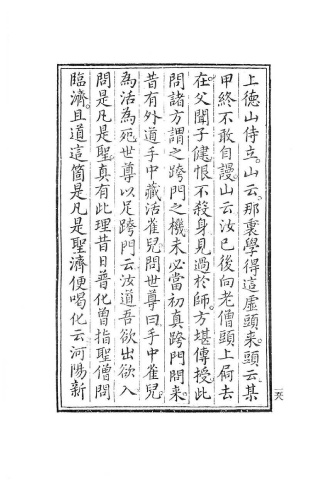 上德山侍立山云那裏學得這虛頭來頭云某
甲終不敢自謾山云汝已後向老僧頭上屙去
在父聞子健恨不殺身見過於師方堪傳授此
問諸方謂之跨門之機未必當初真跨門問來
昔有外道手中藏活雀兒問世尊曰手中雀兒
為活為死世尊以足跨門云汝道吾欲出欲入
問是凡是聖真有此理昔日普化曾指聖僧問
臨濟且道這箇是凡是聖濟便喝化云河陽新